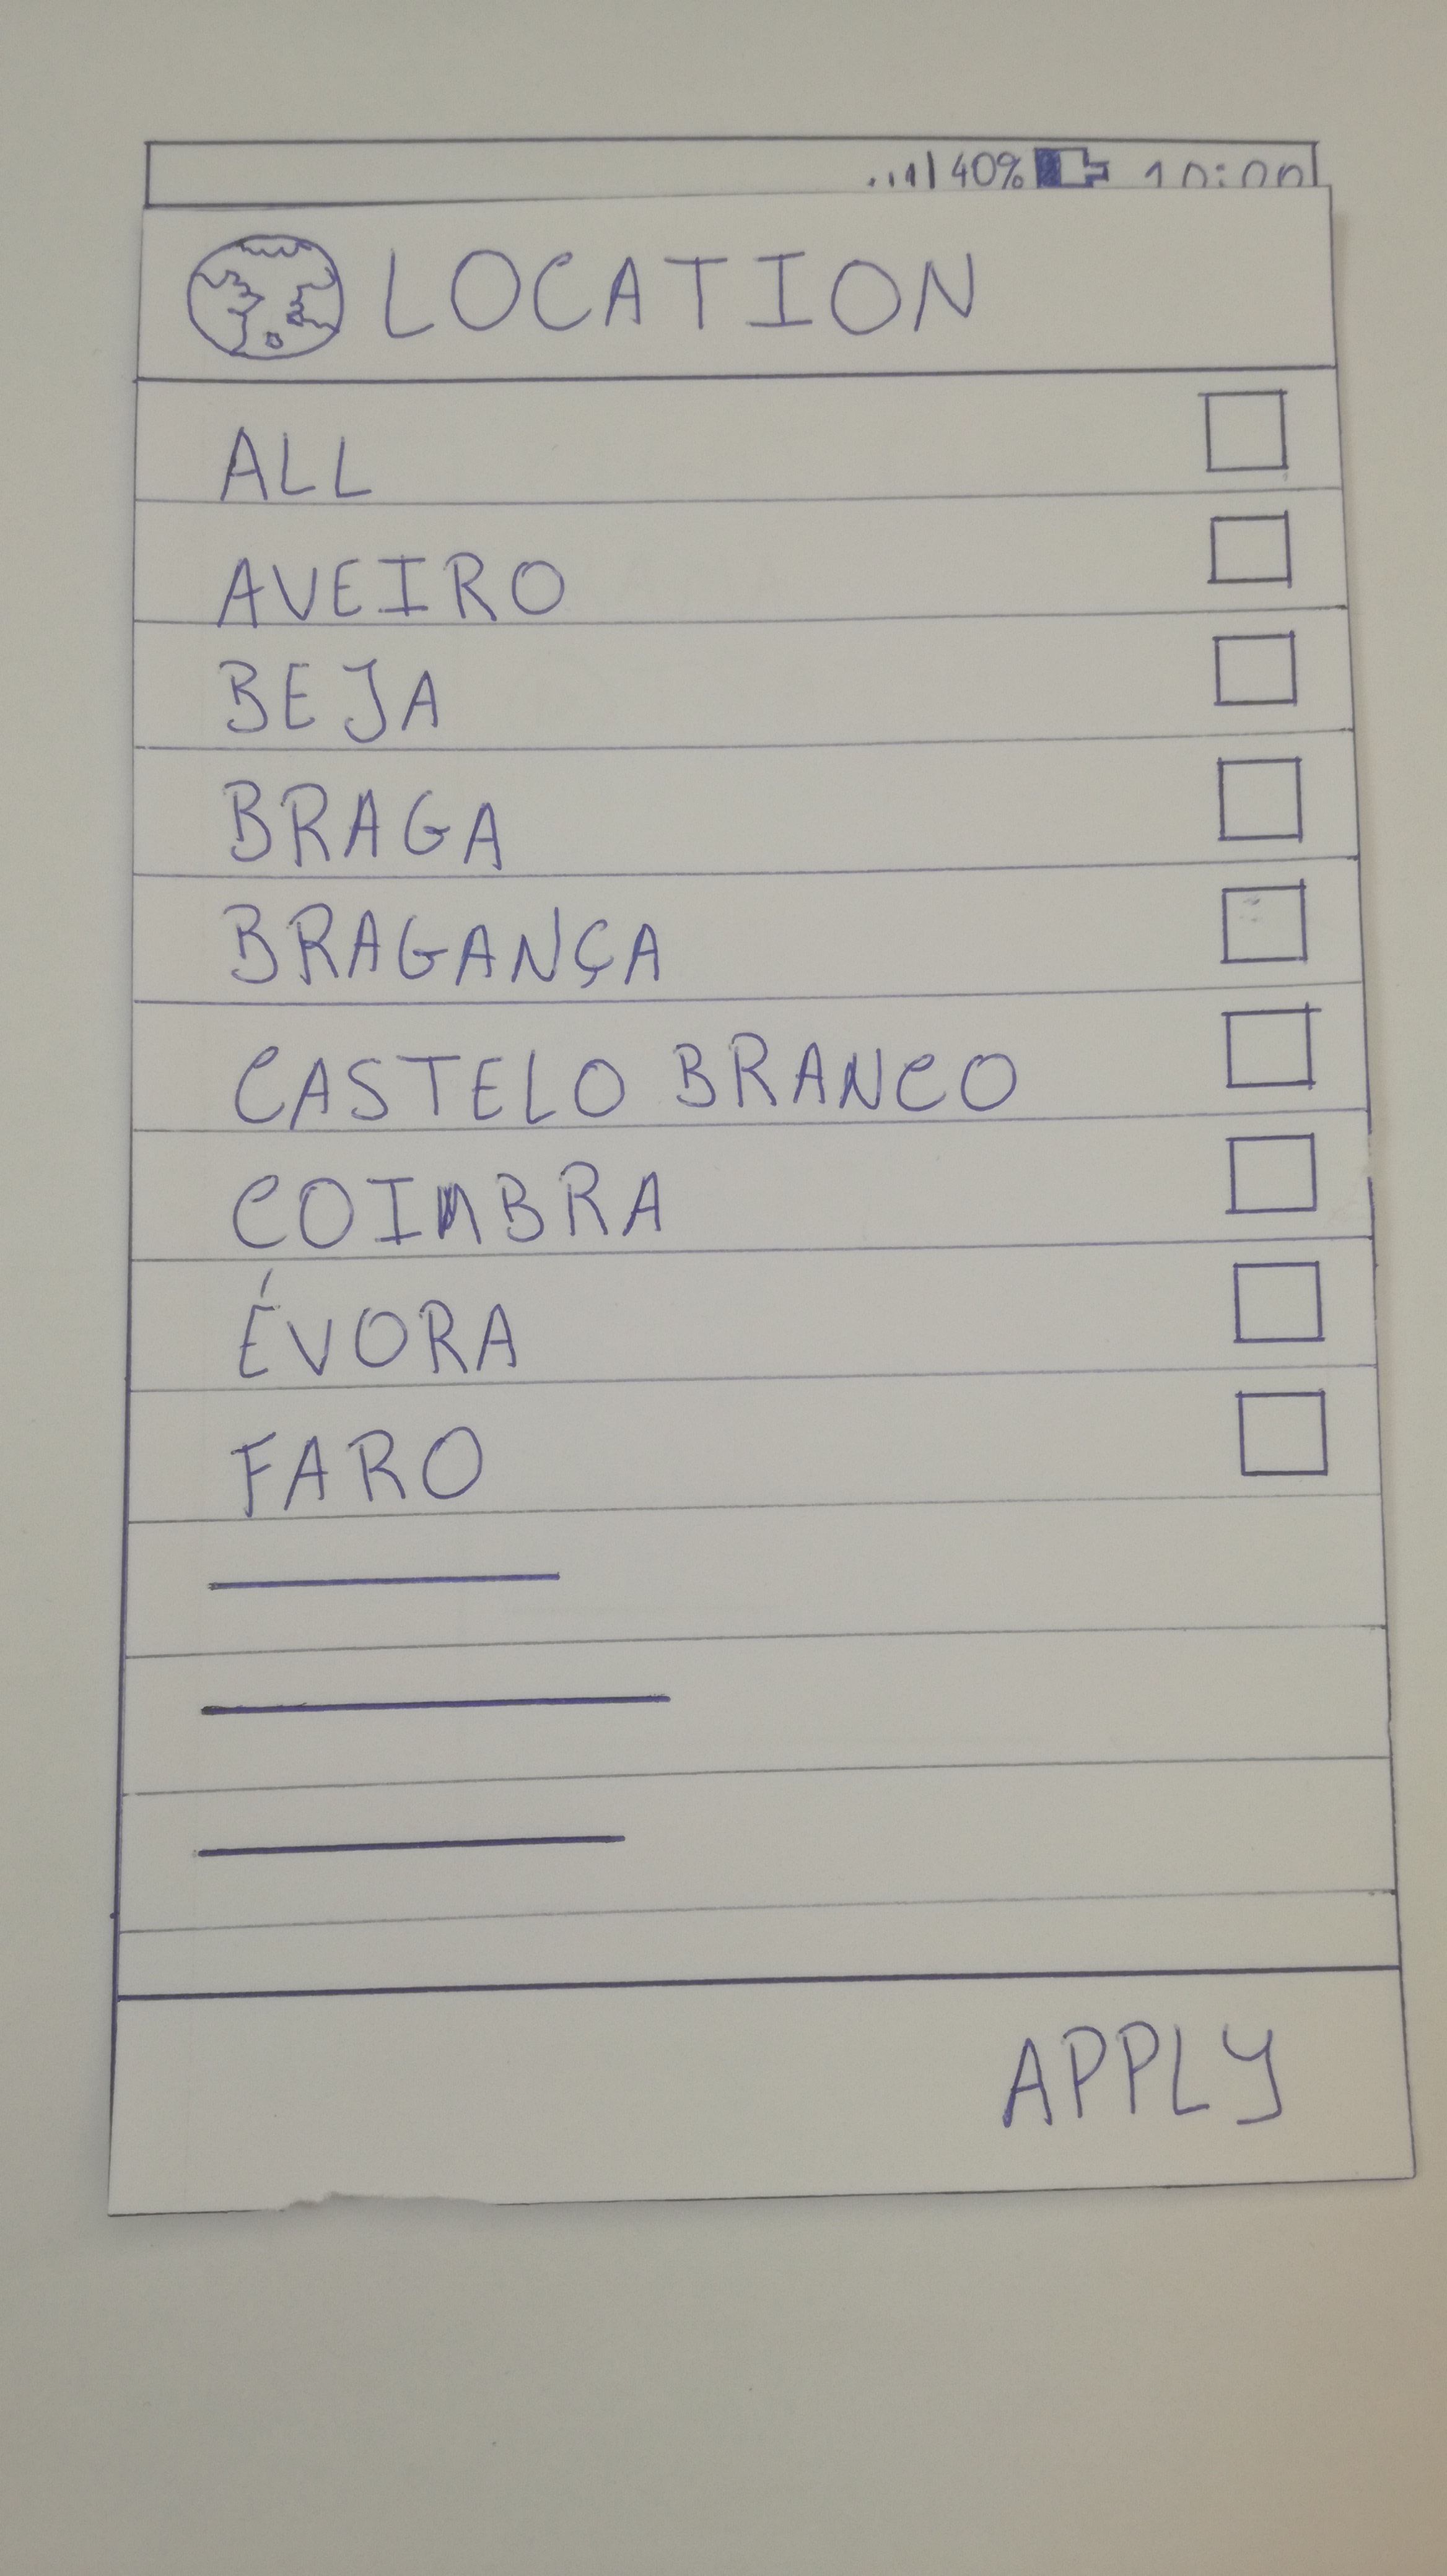 40% 10:00
LOCATION
ALL
AVEIRO
BEJA
BRAGA
BRAGANÇA
CASTELO BRANCO
COIMBRA
ÉVORA
FARO
APPLY